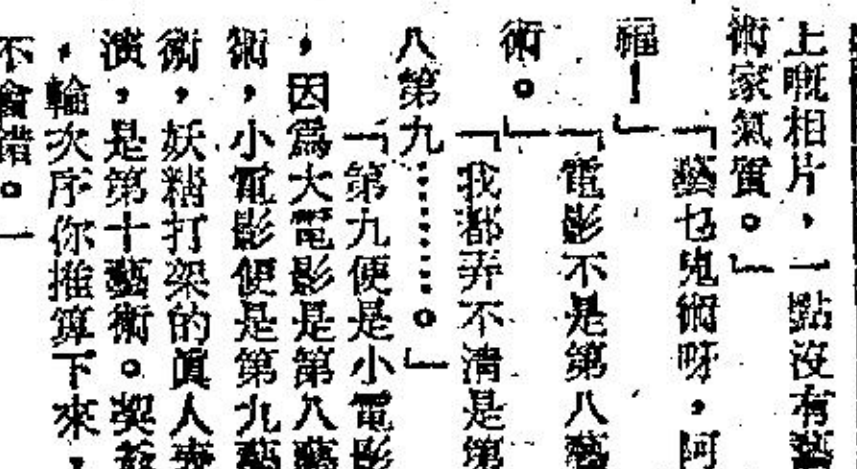 上嘅相片，一點沒有藝
術家氣質。」
「藝乜鬼術呀，阿
福！」
「電影不是第八藝
術。」
「我都弄不清是第
八第九………。」
「第九便是小電影
，因爲大電影是第八藝
術，小電影便是第九藝
術，妖精打架的眞人表
演，是第十藝術。契
，輪次序你推算下來，
不會錯。」